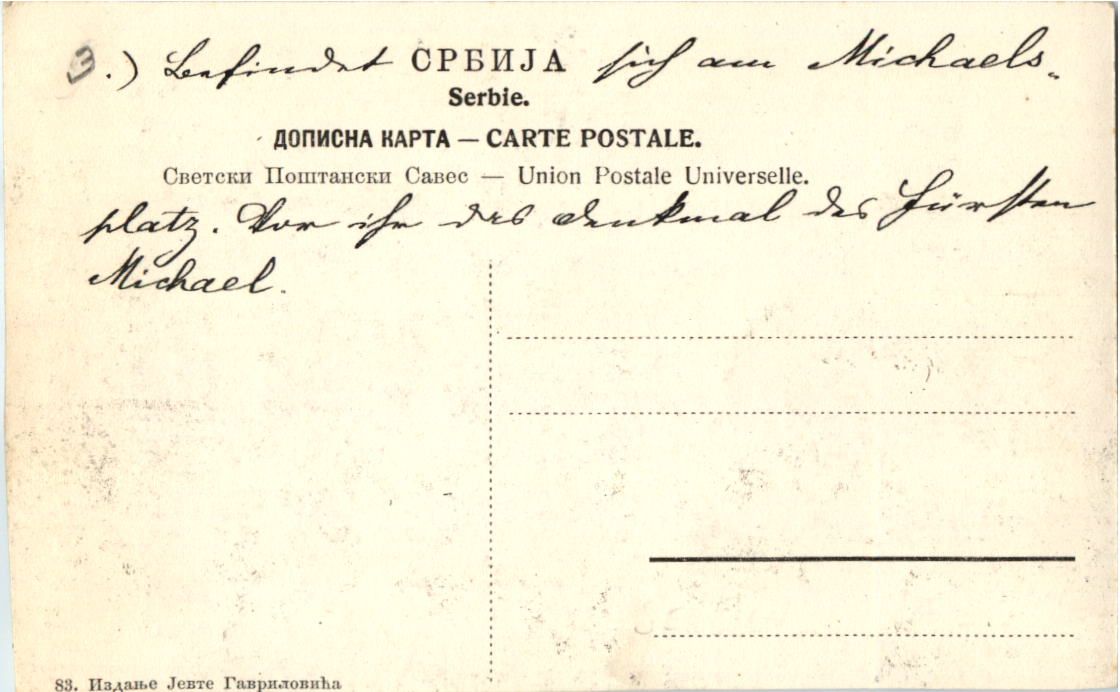 .) Befindet СРБИЈА sich am Michaels-
Serbie.
ДОПИСНА КАРТА — CARTE POSTALE.
Светски Поштански Савес — Union Postale Universelle.
platz. Vor ihr das Denkmal des Fürsten
Michael.
83. Издање Јевте Гавриловића